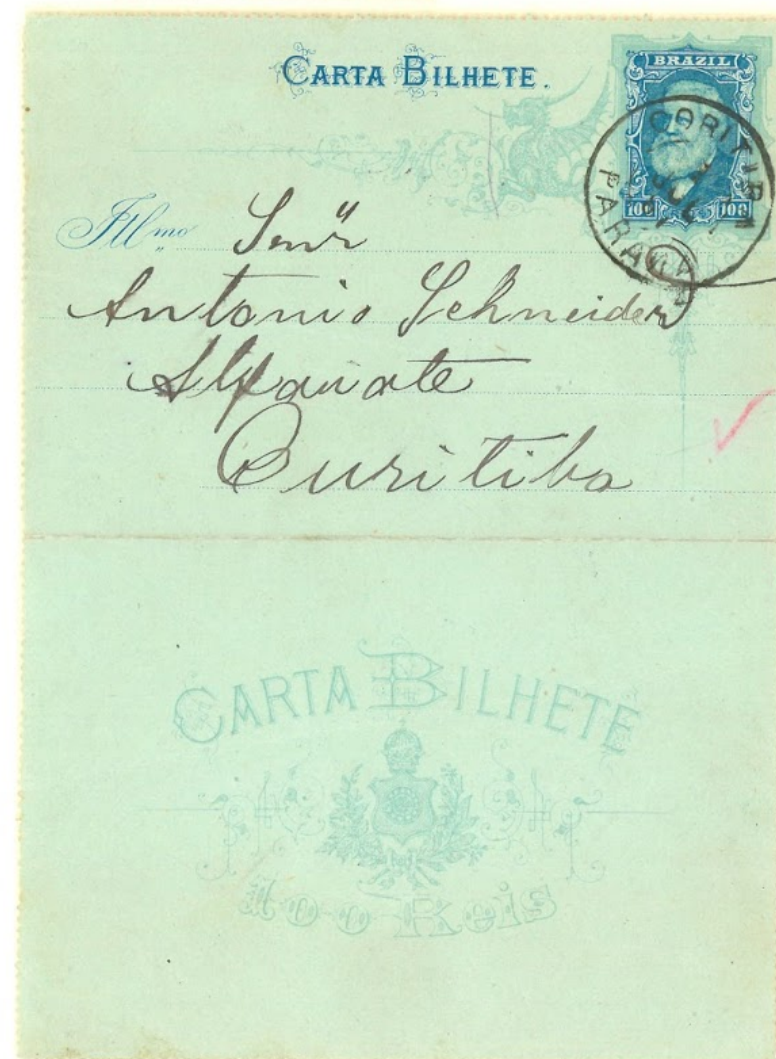 CARTA BILHETE.
BRAZIL
100 100
CORITIBA
PARANÁ
Ill.mo Senr
Antonio Schneider
Alfaiate
Curitiba
CARTA BILHETE
100 Reis